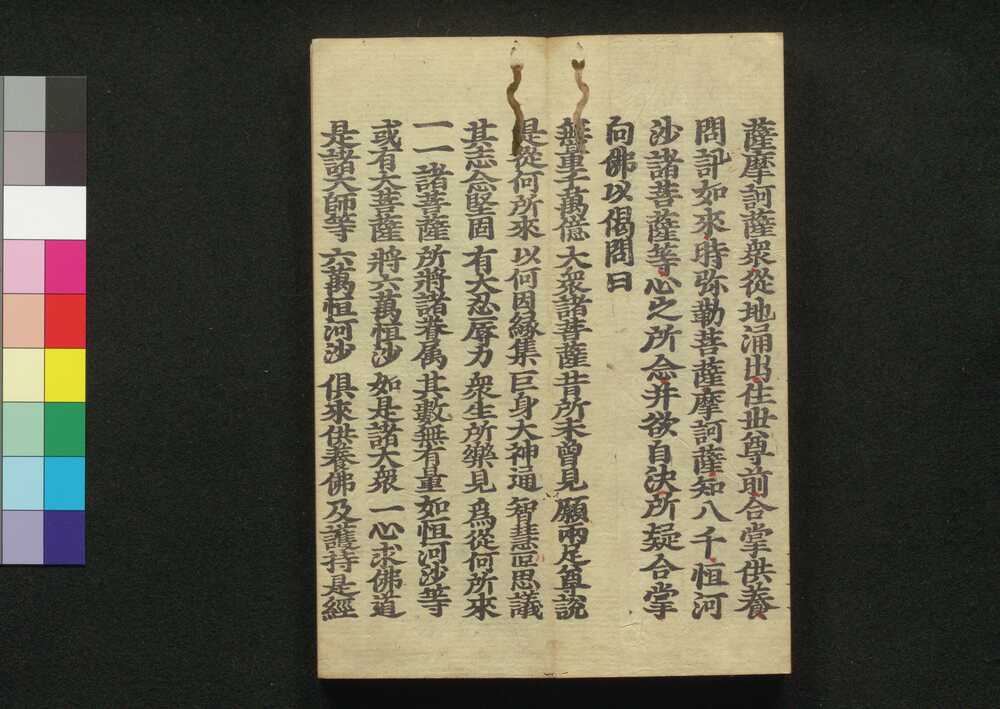 薩摩訶薩衆從地涌出住世尊前合掌供養
問訊如來時弥勒菩薩摩訶薩知八千恒河
沙諸菩薩等心之所念并欲自決所疑合掌
向佛以偈問曰
無量千萬億 大衆諸菩薩 昔所未曾見 願兩足尊說
是從何所來 以何因緣集 巨身大神通 智慧叵思議
其志念堅固 有大忍辱力 衆生所樂見 為從何所來
一一諸菩薩 所將諸眷属 其數無有量 如恒河沙等
或有大菩薩 將六萬恒沙 如是諸大衆 一心求佛道
是諸大師等 六萬恒河沙 俱來供養佛 及護持是經